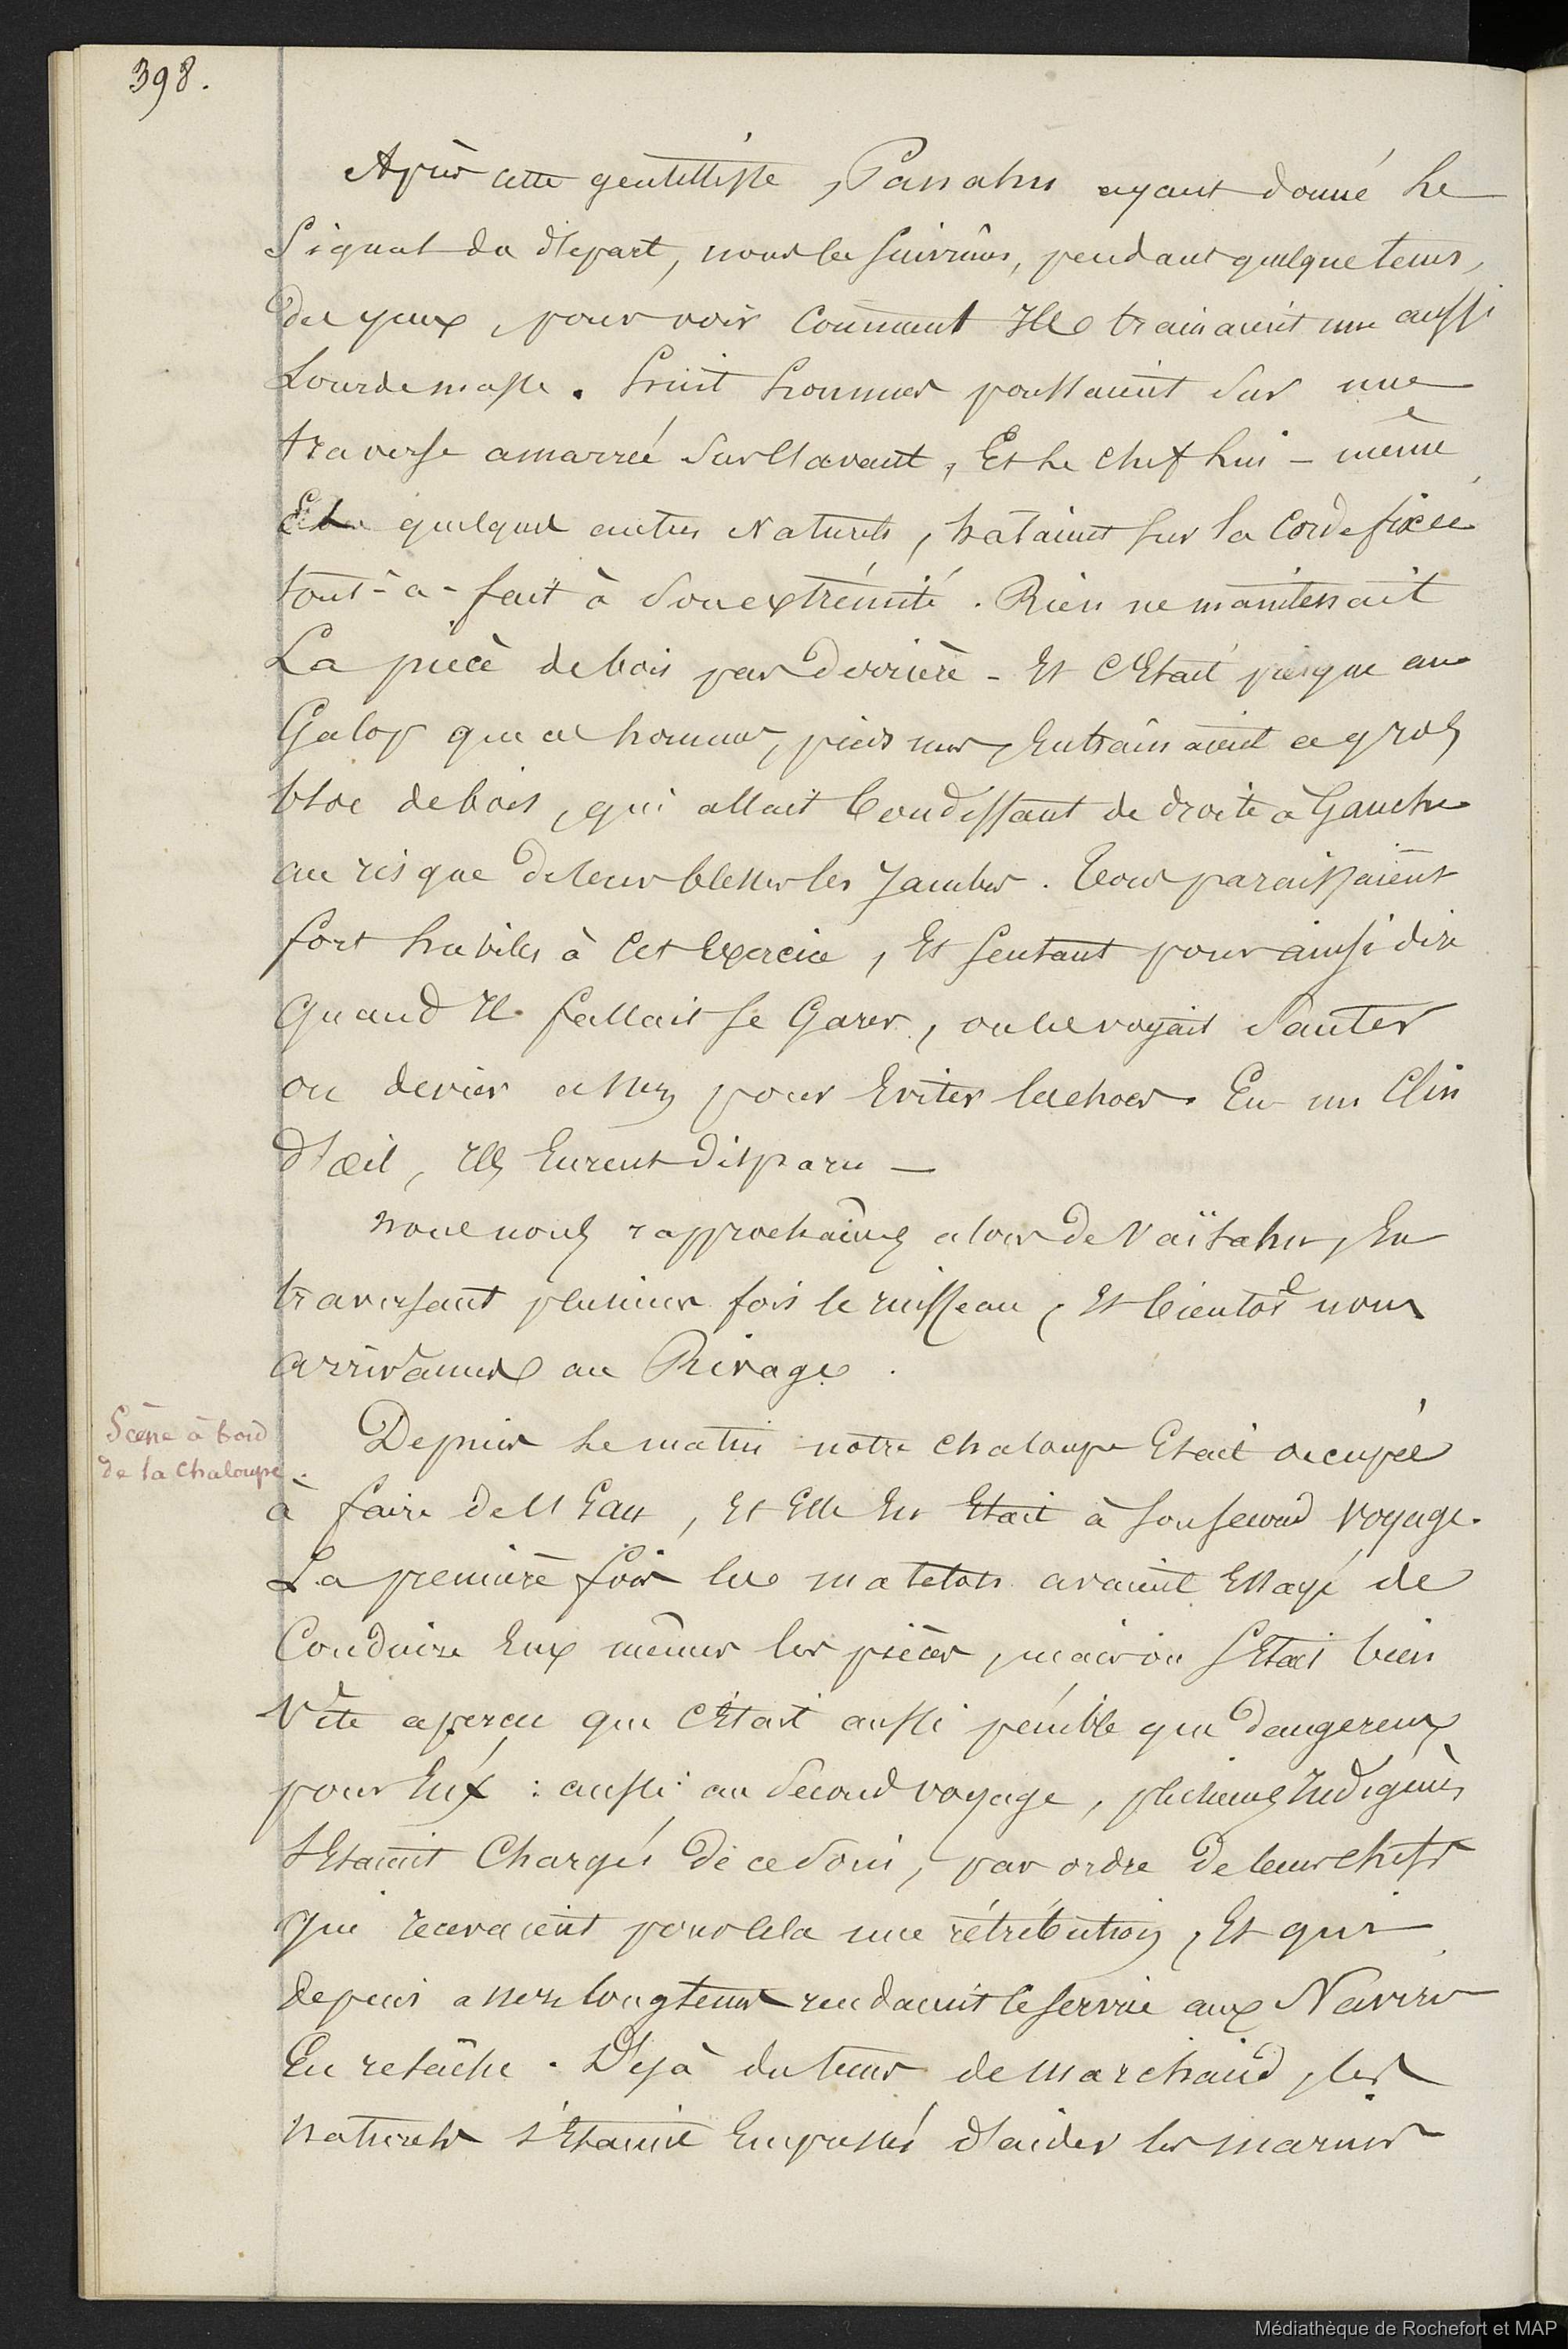 398.
Après cette gentillesse, Panahu ayant donné le
Signal du départ, nous les suivîmes, pendant quelque tems,
des yeux, pour voir comment Ils trainaient une aussi
Lourde masse. huit hommes poussaient sur une
traverse amarrée sur l'avant, Et le chef lui-même
Et quelques autres Naturels, halaient sur la corde fixée
tout-à-fait à son extrémité. Rien ne maintenait
La pièce de bois par derrière - Et c'Etait presque au
Galop que ces hommes, pieds nus, Entraînaient ce gros
bloc de bois, qui allait bondissant de droite à Gauche
au risque de leur blesser les Jambes. tous paraissaient
fort habiles à cet Exercice, Et sentant pour ainsi dire
quand Il fallait se Garer, on les voyait sauter
ou devier assez pour Eviter les chocs. En un Clin
d'œil, Ils Eurent disparu —
nous nous rapprochâmes alors de Vaïtahu, En
traversant plusieurs fois le ruisseau, Et bientôt nous
arrivâmes au Rivage.
Scène à bord
de la chaloupe.
Depuis le matin notre chaloupe Etait occupée
à faire de l'Eau, Et Elle En Etait à son second voyage.
La première fois les matelots avaient Essayé de
Conduire Eux mêmes les pièces, mais on s'Etait bien
Vite aperçu que c'Etait aussi pénible que dangereux
pour Eux : aussi au second voyage, plusieurs Indigènes
s'Etaient Chargés de ce soin, par ordre de leurs chefs
qui recevaient pour cela une rétribution, Et qui
depuis assez longtems rendaient ce service aux Navires
En relâche. Déjà du tems de Marchand, les
naturels s'Etaient Empressés d'aider les marins
Médiathèque de Rochefort et MAP